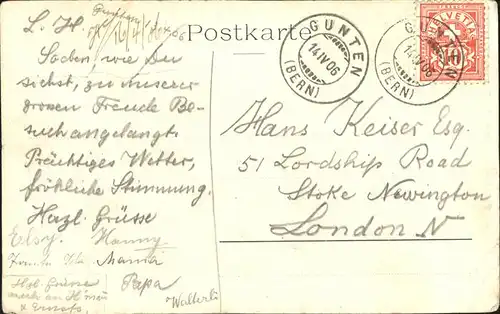 Postkarte
L. H.
Soeben, wie du
siehst, zu unserer
grossen Freude Be-
such angelangt.
Prächtiges Wetter,
fröhliche Stimmung.
Herzl. Grüsse
Elsy. Hanny
Mama
Papa
Walterli
Hrzl. Grüsse
auch an
GUNTEN
14 IV 06
(BERN)
GUNTEN
14 IV 06
(BERN)
HELVETIA
10
Hans Keiser Esq.
51 Lordship Road
Stoke Newington
London N